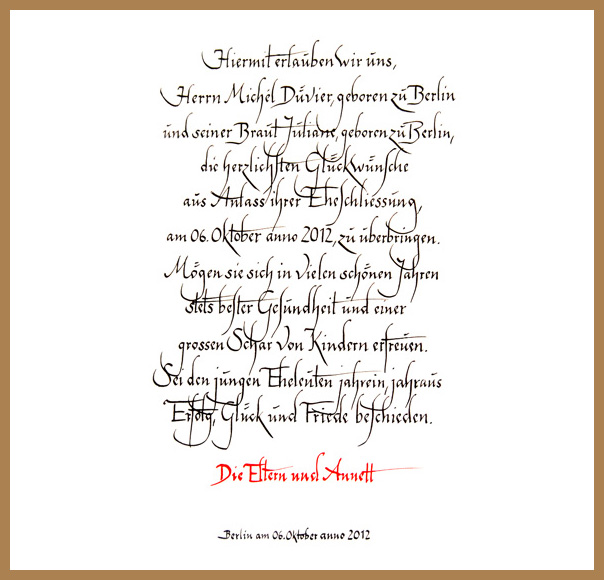 Hiermit erlauben wir uns,
Herrn Michél Düvier, geboren zu Berlin
und seiner Braut Juliane, geboren zu Berlin,
die herzlichsten Glückwünsche
aus Anlass ihrer Eheschliessung,
am 06. Oktober anno 2012, zu überbringen.
Mögen sie sich in vielen schönen Jahren
stets bester Gesundheit und einer
grossen Schar von Kindern erfreuen.
Sei den jungen Eheleuten jahrein, jahraus
Erfolg, Glück und Friede beschieden.
Die Eltern und Annett
Berlin am 06. Oktober anno 2012